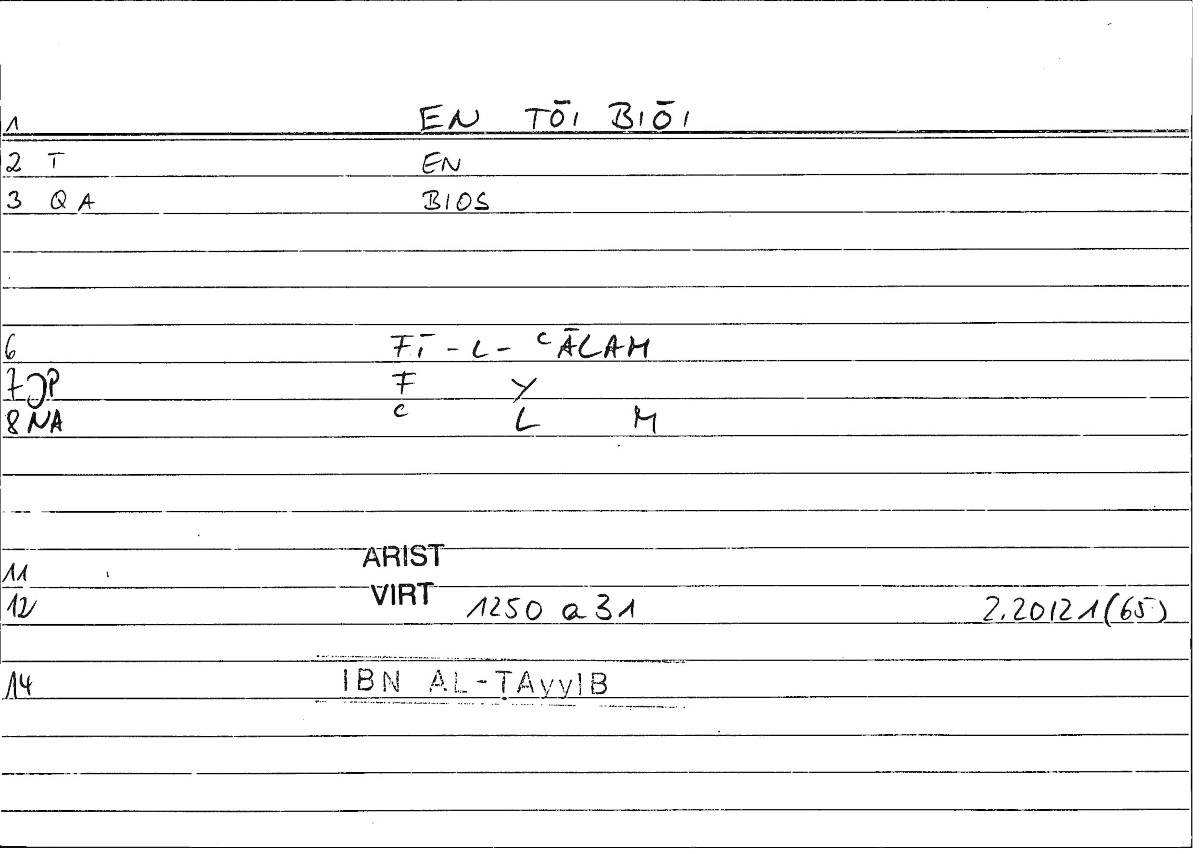 1 EN TŌI BIŌI
2 T EN
3 QA BIOS
6 FĪ-L-ʿĀLAM
7 JP F Y
8 NA ʿ L M
11 ARIST
12 VIRT 1250 a 31 2.20121(65)
14 IBN AL-ṬAyyIB